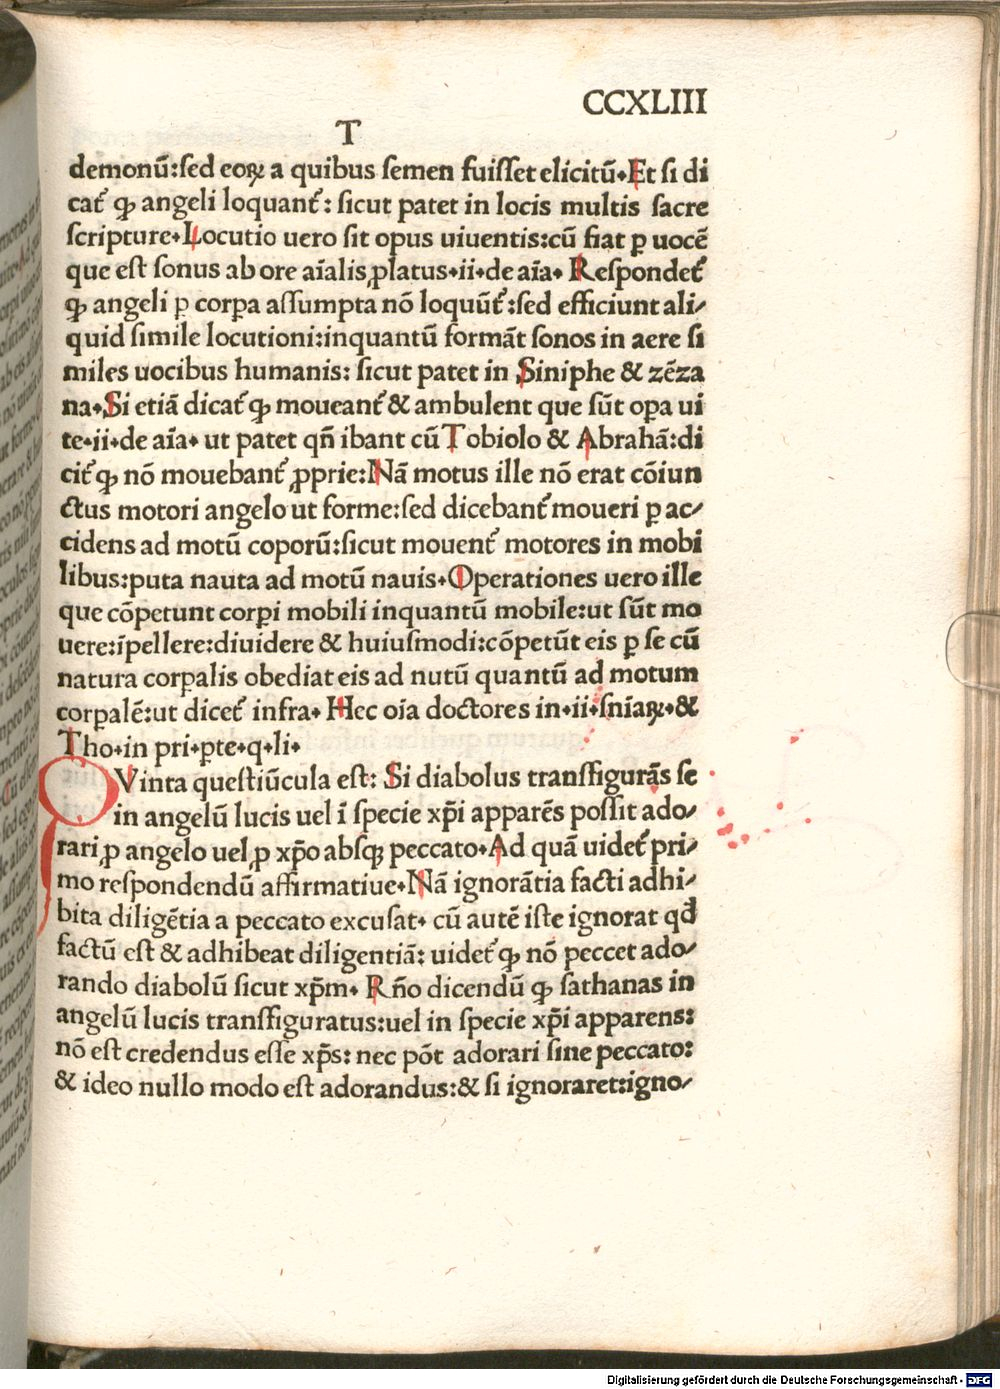 CCXLIII
T
demonū:sed eoꝝ a quibus semen fuisset elicitū.Et si di
cat᷑ ꝙ angeli loquant᷑: sicut patet in locis multis sacre
scripture.Locutio uero sit opus uiuentis:cū fiat ꝑ uocē
que est sonus ab ore aīalis ꝓlatus.ii.de aīa. Respondet᷑
ꝙ angeli ꝑ corpa assumpta nō loquūt᷑:sed efficiunt ali/
quid simile locutioni:inquantū formāt sonos in aere si
miles uocibus humanis: sicut patet in Siniphe & zēza
na.Si etiā dicat᷑ ꝙ moueant᷑ & ambulent que sūt oꝑa ui
te.ii.de aīa. ut patet qn̄ ibant cū Tobiolo & Abrahā:di
cit᷑ ꝙ nō mouebant᷑ ꝓprie:Nā motus ille nō erat cōiun
ctus motori angelo ut forme:sed dicebant᷑ moueri ꝑ ac/
cidens ad motū coporū:sicut mouent᷑ motores in mobi
libus:puta nauta ad motū nauis.Operationes uero ille
que cōpetunt corꝑi mobili inquantū mobile:ut sūt mo
uere:īpellere:diuidere & huiusmodi:cōpetūt eis ꝑ se cū
natura corꝑalis obediat eis ad nutū quantū ad motum
corꝑalē:ut dicet᷑ infra. Hec oīa doctores in.ii.sniaꝝ.&
Tho.in pri.pte.q.li.
QVinta questiūcula est: Si diabolus transfigurās se
in angelū lucis uel ī specie xp̄i apparēs possit ado/
rari ꝓ angelo uel ꝓ xp̄o absqꝫ peccato.Ad quā uidet᷑ pri/
mo respondendū affirmatiue.Nā ignorātia facti adhi/
bita diligētia a peccato excusat. cū autē iste ignorat qđ
factū est & adhibeat diligentiā: uidet᷑ ꝙ nō peccet ado/
rando diabolū sicut xp̄m. Rn̄o dicendū ꝙ sathanas in
angelū lucis transfiguratus:uel in specie xp̄i apparens:
nō est credendus esse xp̄s: nec pōt adorari sine peccato:
& ideo nullo modo est adorandus:& si ignoraret:igno/
Digitalisierung gefördert durch die Deutsche Forschungsgemeinschaft - DFG